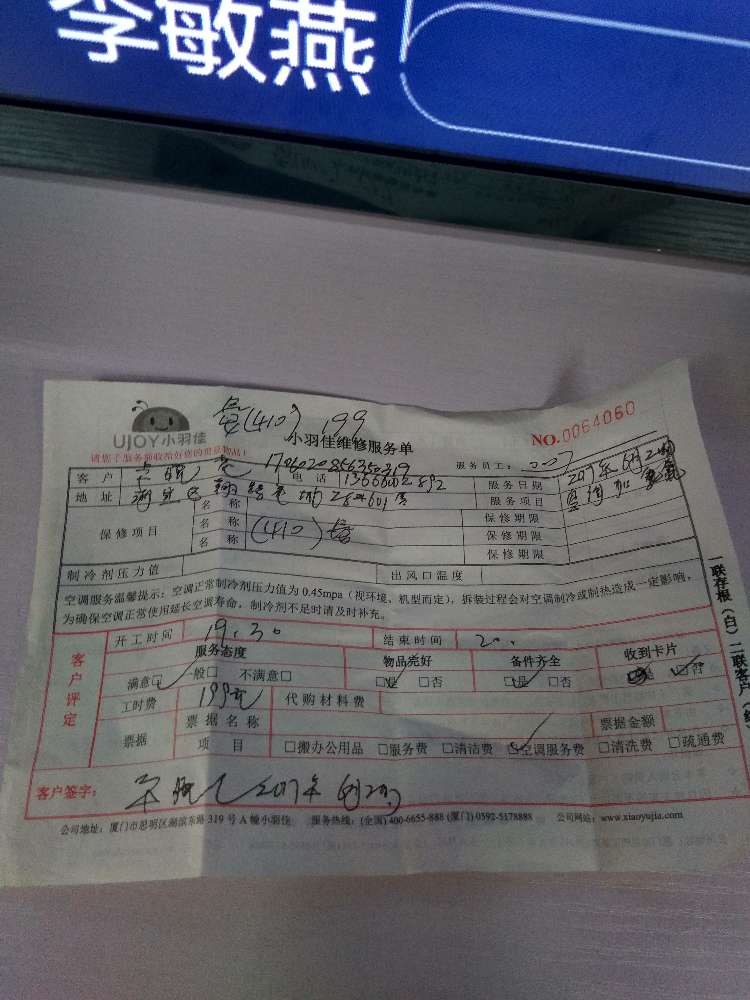 李敏燕
(410) 199
UJOY小羽佳
小羽佳维修服务单
NO.0064060
请您于服务前收拾好您的贵重物品！
客户 电话 服务员工：
服务日期 2017年6月
地址 服务项目
保修项目 名称 保修期限
名称 (410) 保修期限
名称 保修期限
制冷剂压力值 出风口温度
空调服务温馨提示：空调正常制冷剂压力值为 0.45mpa（视环境、机型而定），拆装过程会对空调制冷或制热造成一定影响，
为确保空调正常使用延长空调寿命，制冷剂不足时请及时补充。
开工时间 19.30 结束时间 20.
客户评定
服务态度 物品完好 备件齐全 收到卡片
满意□ 一般□ 不满意□ □是 □否 □是 □否 □是 □否
工时费 199元 代购材料费
票据 票据名称 票据金额
项目 □搬办公用品 □服务费 □清洁费 □空调服务费 □清洗费 □疏通费
客户签字： 2017年6月
公司地址：厦门市思明区湖滨东路 319 号 A 幢小羽佳 服务热线：(全国) 400-6655-888 (厦门) 0592-5178888 公司网站：www.xiaoyujia.com
一联存根（白）二联客户